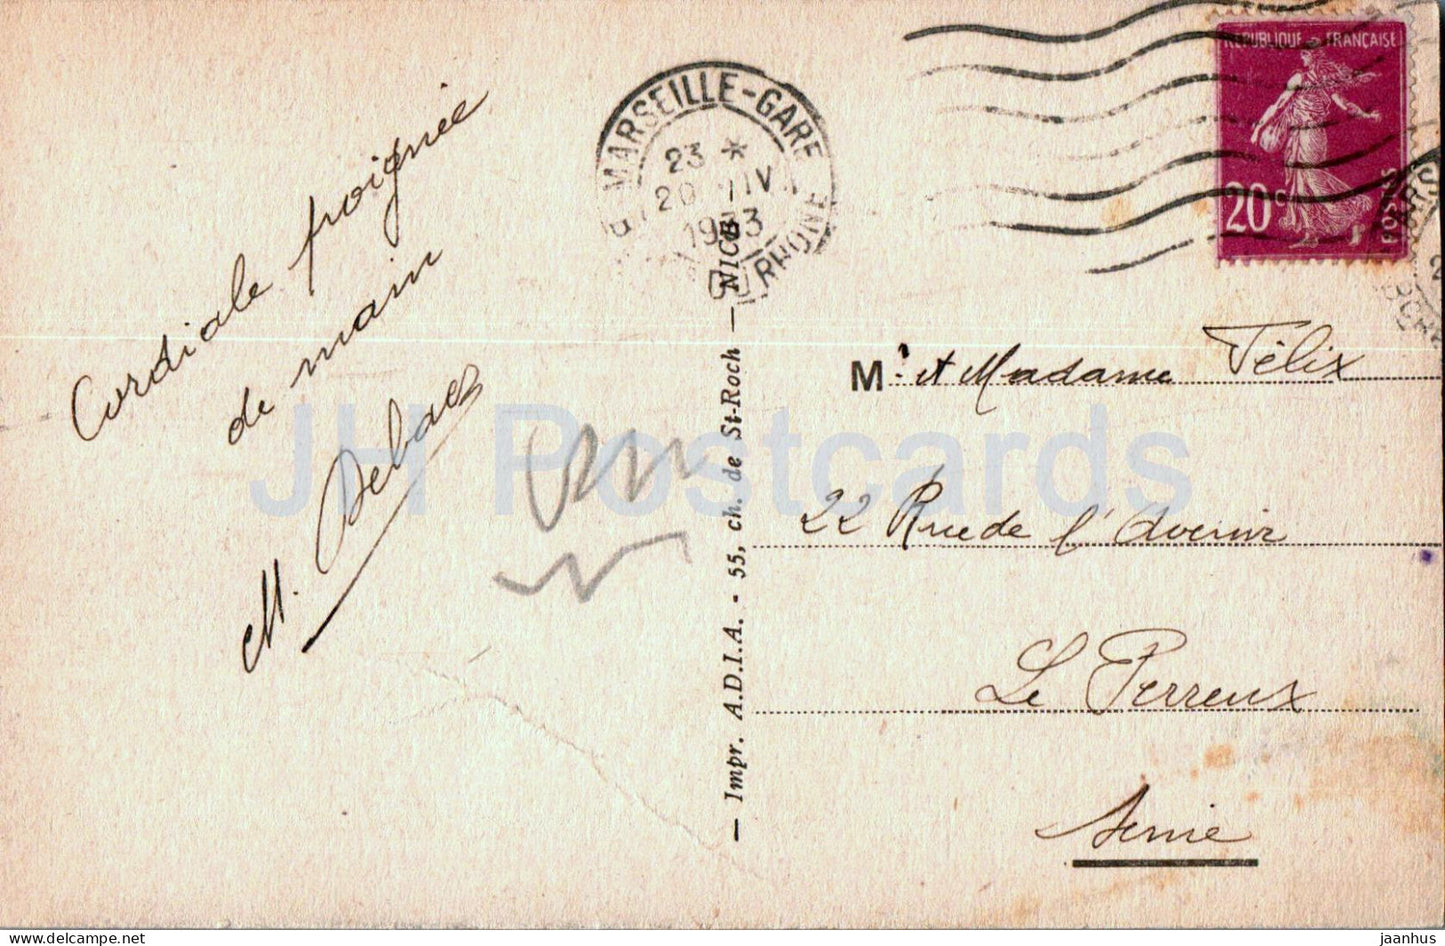 Cordiale poignée
de main
M.
MARSEILLE-GARE
23 *
20 IV
1933
DU RHONE
REPUBLIQUE FRANÇAISE
20c
POSTES
M.r et Madame Félix
22 Rue de l'Avenir
Le Perreux
Seine
— Impr. A.D.I.A. - 55, ch. de St-Roch — NICE
JH Postcards
www.delcampe.net
jaanhus